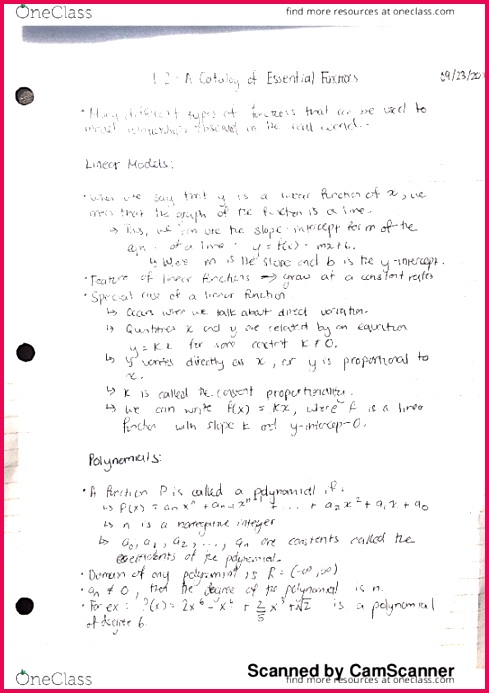 OneClass
find more resources at oneclass.com
1.2 - A Catalog of Essential Functions 09/23/20
• Many different types of functions that can be used to
model relationships observed in the real world.
Linear Models:
• When we say that y is a linear function of x, we
mean that the graph of the function is a line.
↳ Thus, we can use the slope-intercept form of the
eqn. of a line. y = f(x) = mx+b.
↳ Where m is the slope and b is the y-intercept.
• Feature of linear functions → grow at a constant rates
• Special case of a linear function
↳ Occurs when we talk about direct variation.
↳ Quantities x and y are related by an equation
y = kx for some constant k ≠ 0.
↳ y varies directly as x, or y is proportional to
x.
↳ k is called the constant proportionality.
↳ We can write f(x) = kx, where f is a linear
function with slope k and y-intercep-0.
Polynomials:
• A function P is called a polynomial if:
↳ P(x) = aₙxⁿ + aₙ₋₁xⁿ⁻¹ + ... + a₂x² + a₁x + a₀
↳ n is a nonnegative integer
↳ a₀, a₁, a₂, ..., aₙ are constants called the
coefficients of the polynomial.
• Domain of any polynomial is R = (-∞, ∞)
• aₙ ≠ 0, then the degree of the polynomial is n.
• For ex: P(x) = 2x⁶ - x⁴ + 2/5 x³ + √2 is a polynomial
of degree 6.
Scanned by CamScanner
OneClass
find more resources at oneclass.com